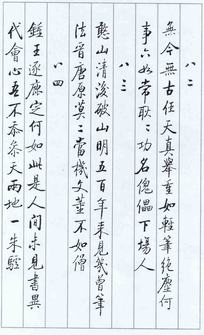 八二
無今無古任天真舉重如輕筆絕塵何
事六如常耿〻功名傀儡下場人
八三
憨山清後破山明五百年來見幾曾筆
法晉唐原莫二當機文董不如僧
八四
鍾王逐鹿定何如此是人間未見書異
代會心吾不忝參天兩地一朱驢